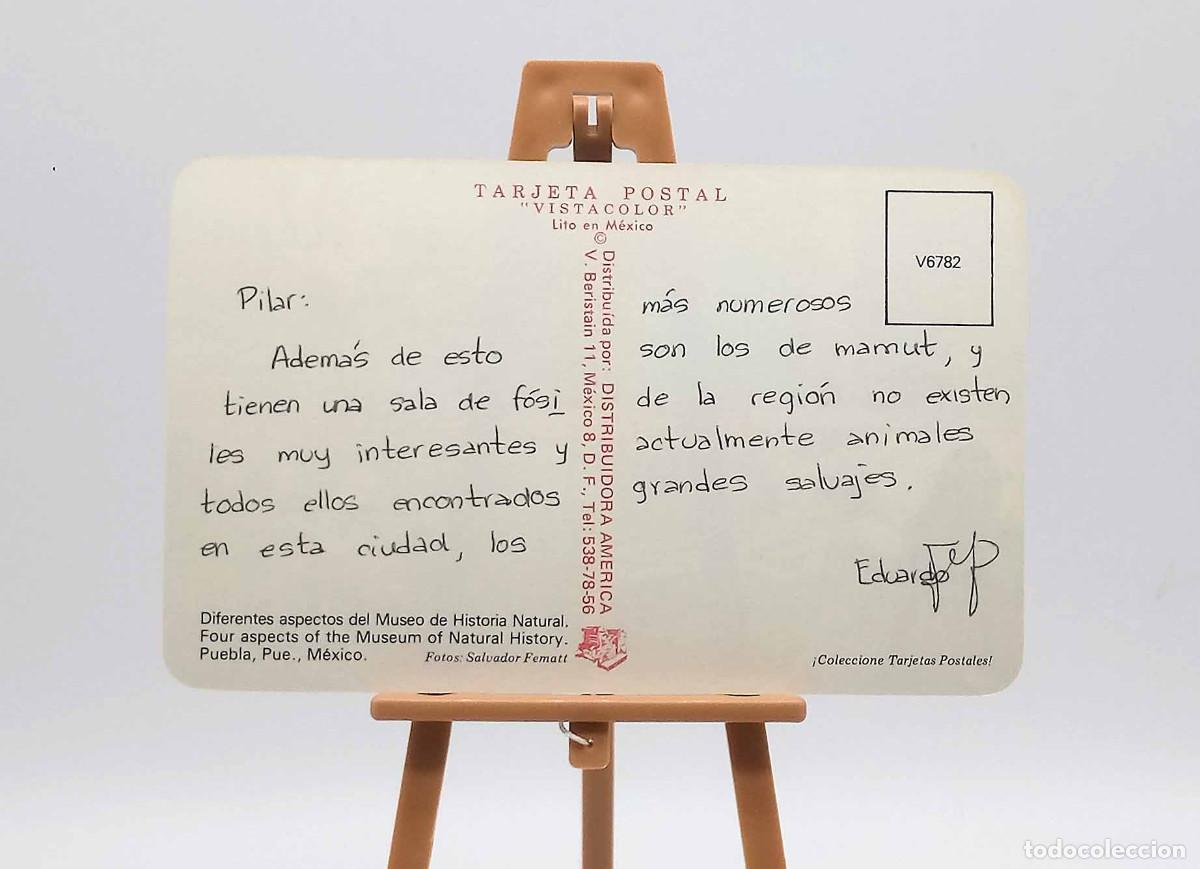 TARJETA POSTAL
"VISTACOLOR"
Lito en México
©
V6782
Pilar:
Además de esto
tienen una sala de fósi
les muy interesantes y
todos ellos encontrados
en esta ciudad, los
Distribuída por: DISTRIBUIDORA AMERICA
V. Beristain 11, México 8, D. F., Tel: 538-78-56
más numerosos
son los de mamut, y
de la región no existen
actualmente animales
grandes salvajes.
Eduardo
Diferentes aspectos del Museo de Historia Natural.
Four aspects of the Museum of Natural History.
Puebla, Pue., México. Fotos: Salvador Fematt
¡Coleccione Tarjetas Postales!
todocoleccion